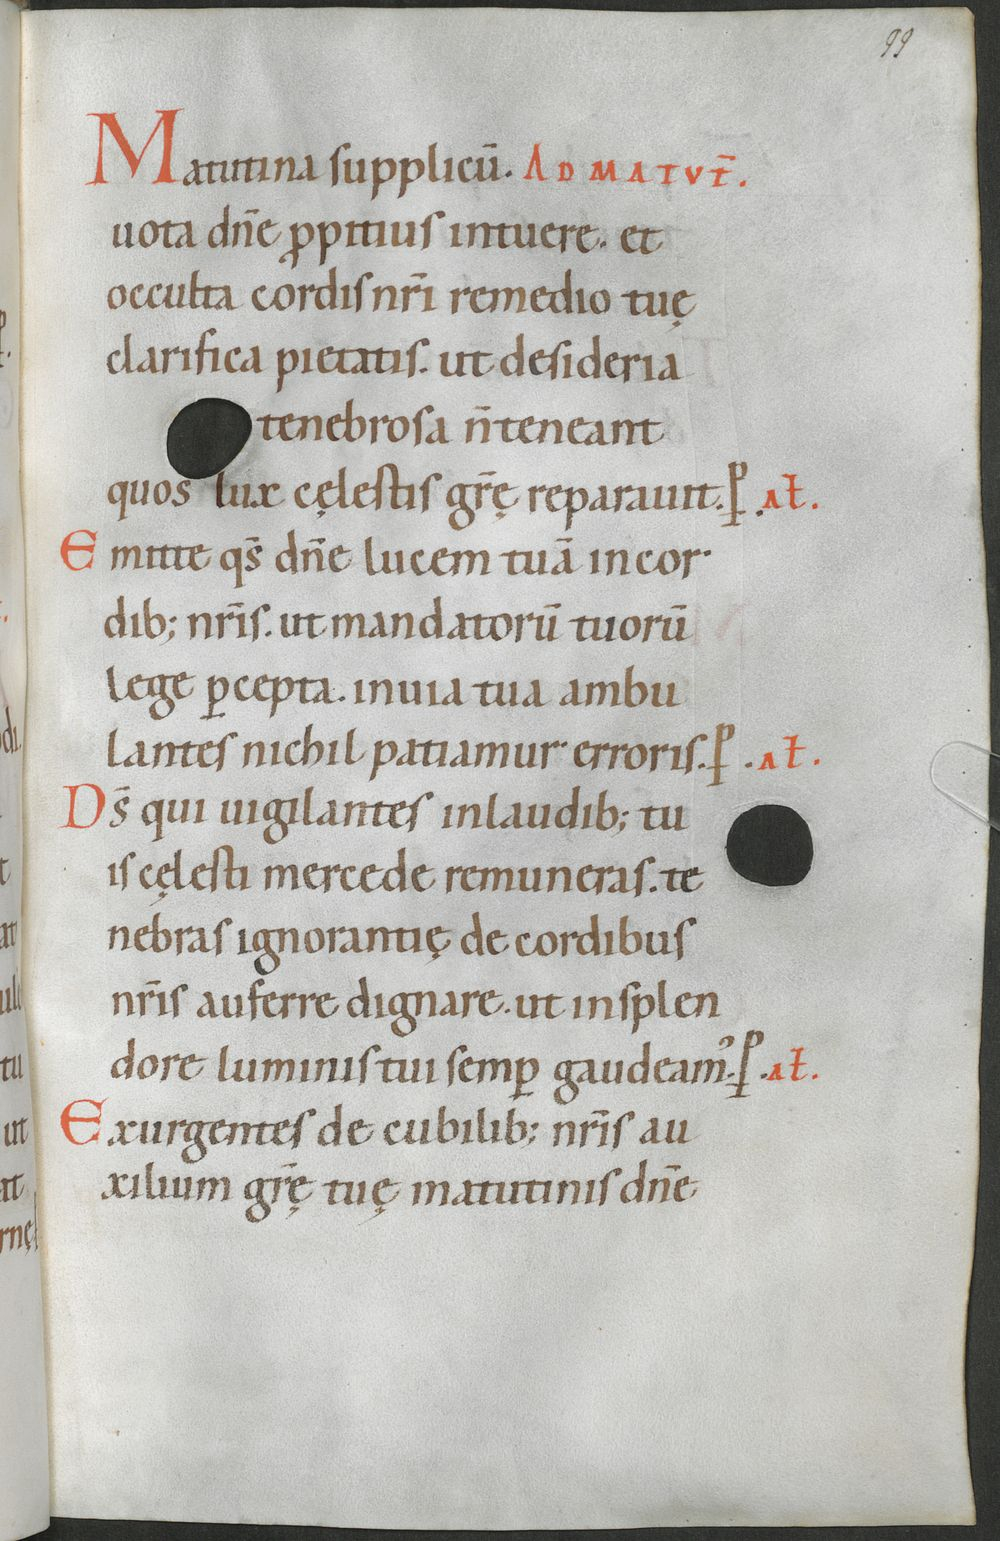 99
Matutina supplicū. AD MATVT̄.
uota dn̄e ꝓpitius intuere. et
occulta cordis nr̄i remedio tuę
clarifica pietatis. ut desideria
tenebrosa n̄ teneant
quos lux cęlestis gr̄ę reparauit. ꝑ. Ał.
Emitte qs̄ dn̄e lucem tuā in cor
dib; nr̄is. ut mandatorū tuorū
lege ꝑcepta. in uia tua ambu
lantes nichil patiamur erroris. ꝑ. Ał.
Ds̄ qui uigilantes in laudib; tu
is cęlesti mercede remuneras. te
nebras ignorantię de cordibus
nr̄is auferre dignare. ut in splen
dore luminis tui semꝑ gaudeamꝰ. ꝑ. Ał.
Exurgentes de cubilib; nr̄is au
xilium gr̄ę tuę matutinis dn̄e